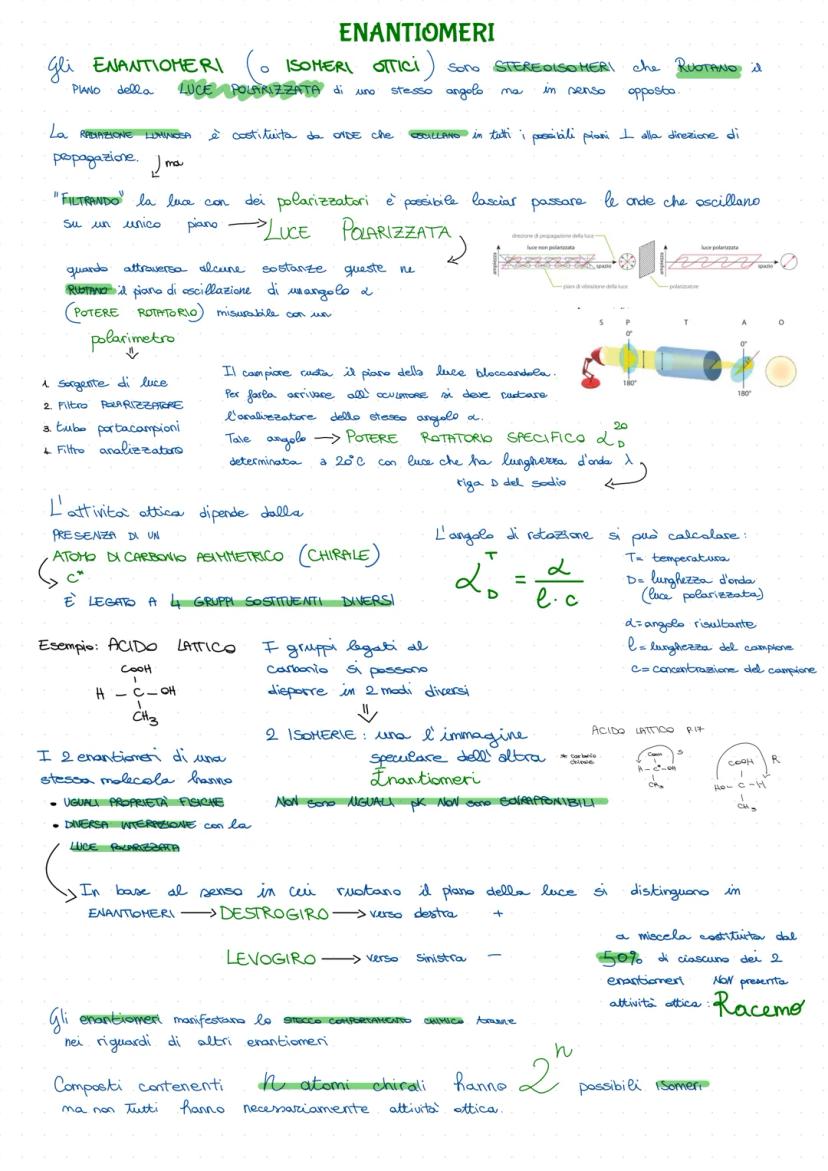 ENANTIOMERI
Gli ENANTIOMERI (o ISOMERI OTTICI) sono STEREOISOMERI che RUOTANO il
PIANO della LUCE POLARIZZATA di uno stesso angolo ma in senso opposto.
La RADIAZIONE LUMINOSA è costituita da ONDE che OSCILLANO in tutti i possibili piani ⊥ alla direzione di
propagazione. ma
"FILTRANDO" la luce con dei polarizzatori è possibile lasciar passare le onde che oscillano
su un unico piano → LUCE POLARIZZATA
direzione di propagazione della luce
luce non polarizzata
luce polarizzata
ampiezza
spazio
ampiezza
spazio
piani di vibrazione della luce
polarizzatore
quando attraversa alcune sostanze queste ne
RUOTANO il piano di oscillazione di un angolo α
(POTERE ROTATORIO) misurabile con un
polarimetro
⇓
S P T A O
0°
0°
180°
180°
1. sorgente di luce
2. Filtro POLARIZZATORE
3. tubo portacampioni
4. Filtro analizzatore
Il campione ruota il piano della luce bloccandola.
Per farla arrivare all'OCULATORE si deve ruotare
l'analizzatore dello stesso angolo α.
Tale angolo → POTERE ROTATORIO SPECIFICO α 20 D
determinata a 20°C con luce che ha lunghezza d'onda λ
riga D del sodio
L'attività ottica dipende dalla
PRESENZA DI UN
ATOMO DI CARBONIO ASIMMETRICO (CHIRALE)
C*
È LEGATO A 4 GRUPPI SOSTITUENTI DIVERSI
L'angolo di rotazione si può calcolare:
α T D = α / l · c
T = temperatura
D = lunghezza d'onda
(luce polarizzata)
α = angolo risultante
l = lunghezza del campione
c = concentrazione del campione
Esempio: ACIDO LATTICO
COOH
H – C – OH
CH3
I gruppi legati al
carbonio si possono
disporre in 2 modi diversi
⇓
2 ISOMERIE: una l'immagine
speculare dell'altra
Enantiomeri
NON sono UGUALI pk NON sono SOVRAPPONIBILI
ACIDO LATTICO P.17
* carbonio
chirale
COOH S
H – C* – OH
CH3
COOH R
HO – C – H
CH3
I 2 enantiomeri di una
stessa molecola hanno
• UGUALI PROPRIETÀ FISICHE
• DIVERSA INTERAZIONE con la
LUCE POLARIZZATA
In base al senso in cui ruotano il piano della luce si distinguono in
ENANTIOMERI → DESTROGIRO → verso destra +
LEVOGIRO → verso sinistra –
a miscela costituita dal
50% di ciascuno dei 2
enantiomeri NON presenta
attività ottica: Racemo
Gli enantiomeri manifestano lo STESSO COMPORTAMENTO CHIMICO tranne
nei riguardi di altri enantiomeri
Composti contenenti n atomi chirali hanno 2ⁿ possibili isomeri
ma non tutti hanno necessariamente attività ottica.